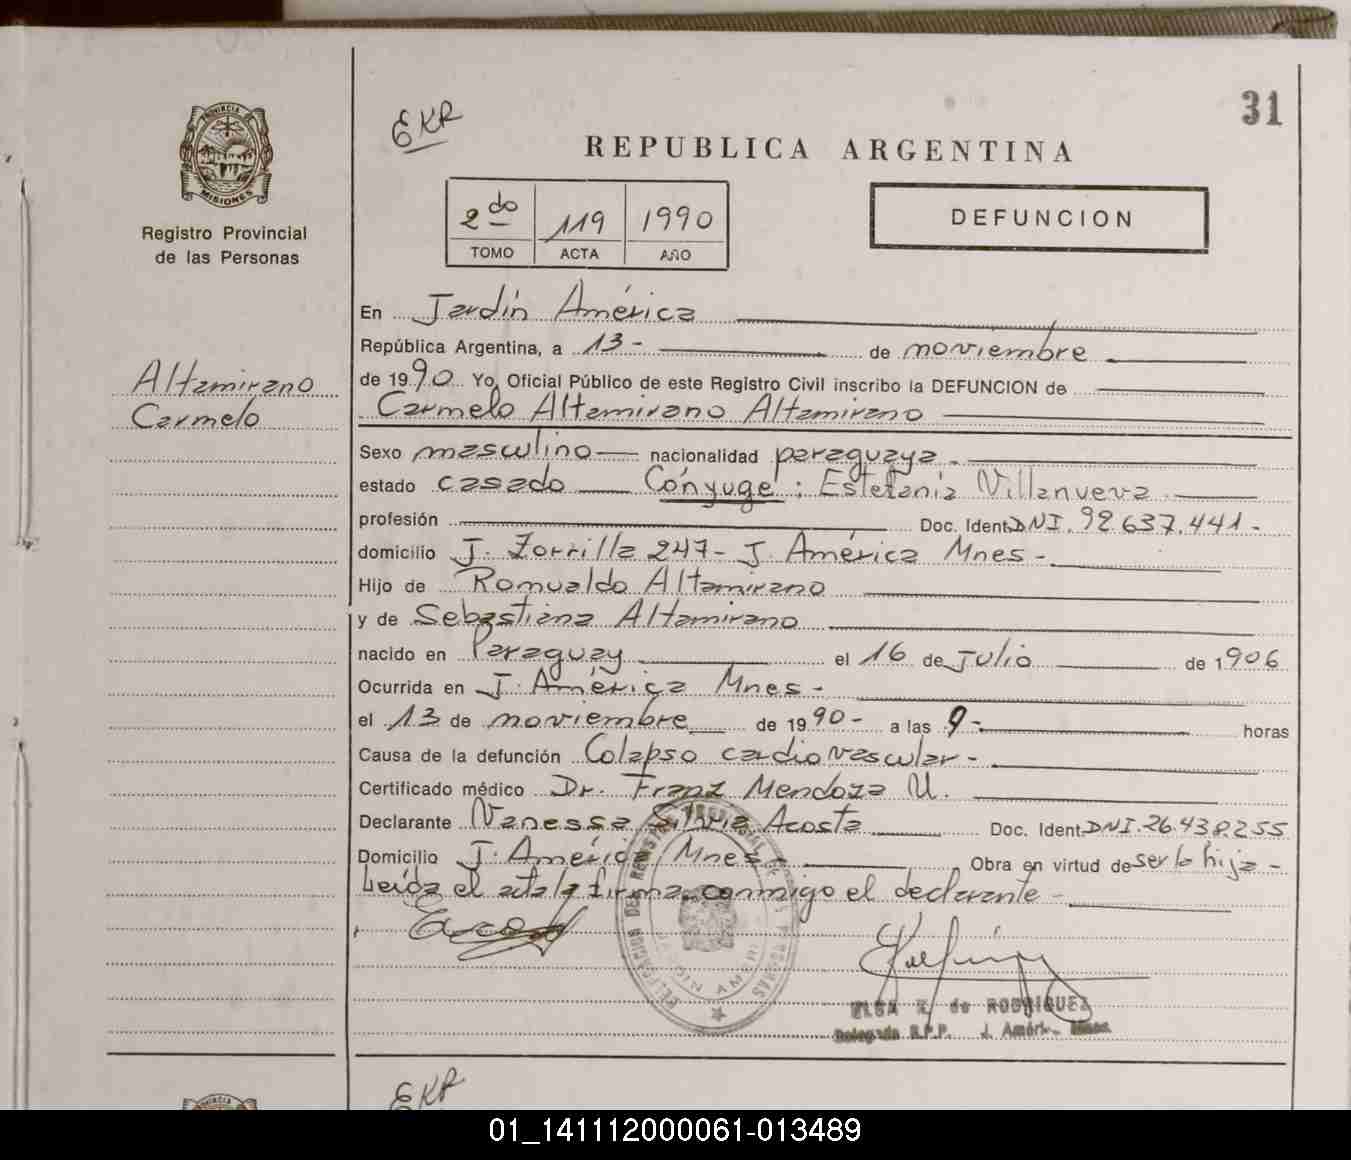 31
EKR
REPUBLICA ARGENTINA
PROVINCIA DE
MISIONES
Registro Provincial
de las Personas
2do 119 1990
TOMO ACTA AÑO
DEFUNCION
Altamirano
Carmelo
En Jardín América
República Argentina, a 13- de noviembre
de 1990 Yo, Oficial Público de este Registro Civil inscribo la DEFUNCION de
Carmelo Altamirano Altamirano
Sexo masculino nacionalidad paraguaya-
estado casado Cónyuge: Estefania Villanueva
profesión Doc. Ident. DNI. 92.637.441-
domicilio J. Zorrilla 247- J. América Mnes-
Hijo de Romualdo Altamirano
y de Sebastiana Altamirano
nacido en Paraguay el 16 de Julio de 1906
Ocurrida en J. América Mnes-
el 13 de noviembre de 1990- a las 9- horas
Causa de la defunción Colapso cardiovascular-
Certificado médico Dr. Franz Mendoza U.
Declarante Vanessa Silvia Acosta Doc. Ident. DNI. 26.438.255
Domicilio J. América, Mnes- Obra en virtud de ser la hija-
Leída el acta la firma conmigo el declarante-
ELSA K. de RODRIGUEZ
Delegada R.P.P. J. Amér. Mnes.
EKR
01_141112000061-013489